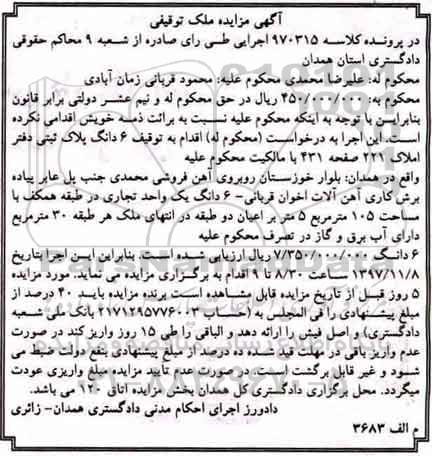 آگهی مزایده ملک توقیفی
در پرونده کلاسه ۹۷۰۳۱۵ اجرایی طی رای صادره از شعبه ۹ محاکم حقوقی
دادگستری استان همدان
محکوم له: علیرضا محمدی محکوم علیه: محمود قربانی زمان آبادی
محکوم به: ۴۵۰/۰۰۰/۰۰۰ ریال در حق محکوم له و نیم عشر دولتی برابر قانون
بنابراین با توجه به اینکه محکوم علیه نسبت به برائت ذمه خویش اقدامی نکرده
است. این اجرا به درخواست (محکوم له) اقدام به توقیف ۶ دانگ پلاک ثبتی دفتر
املاک ۲۲۱ صفحه ۴۳۱ با مالکیت محکوم علیه
واقع در همدان: بلوار خوزستان روبروی آهن فروشی محمدی جنب پل عابر پیاده
برش کاری آهن آلات اخوان قربانی- ۶ دانگ یک واحد تجاری در طبقه همکف با
مساحت ۱۰۵ مترمربع ۵ متر بر اعیان دو طبقه در انتهای ملک هر طبقه ۳۰ مترمربع
دارای آب برق و گاز در تصرف محکوم علیه
۶ دانگ ۷/۳۵۰/۰۰۰/۰۰۰ ریال ارزیابی شده است. بنابراین این اجرا بتاریخ
۱۳۹۷/۱۱/۸ ساعت ۸/۳۰ تا ۹ اقدام به برگزاری مزایده می نماید. مورد مزایده
۵ روز قبل از تاریخ مزایده قابل مشاهده است برنده مزایده باید ۴۰ درصد از
مبلغ پیشنهادی را فی المجلس به (حساب ۲۱۷۱۲۹۵۷۷۶۰۰۳ بانک ملی شعبه
دادگستری) و اصل فیش را ارائه دهد و الباقی را طی ۱۵ روز واریز کند در صورت
عدم واریز باقی در مهلت قید شده ده درصد از مبلغ پیشنهادی بنفع دولت ضبط می
شود و غیر قابل برگشت است. در صورت عدم تأیید مزایده مبلغ واریزی عودت
میگردد. محل برگزاری دادگستری کل همدان بخش مزایده اتاق ۱۴۰ می باشد.
دادورز اجرای احکام مدنی دادگستری همدان- زائری
م الف ۳۶۸۳